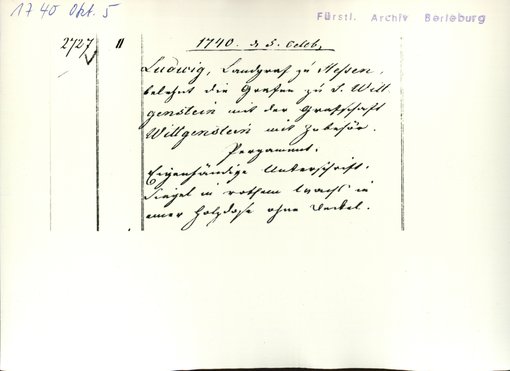 1740 Okt. 5
Fürstl. Archiv Berleburg
2727 "
1740. d. 5. Octob.
Ludwig, Landgraf zu Hessen,
belehnt die Grafen zu S. Witt
genstein mit der Grafschaft
Wittgenstein mit Zubehör.
Pergament.
Eigenhändige Unterschrift.
Siegel in rothem Wachs in
einer Holzdose ohne Deckel.